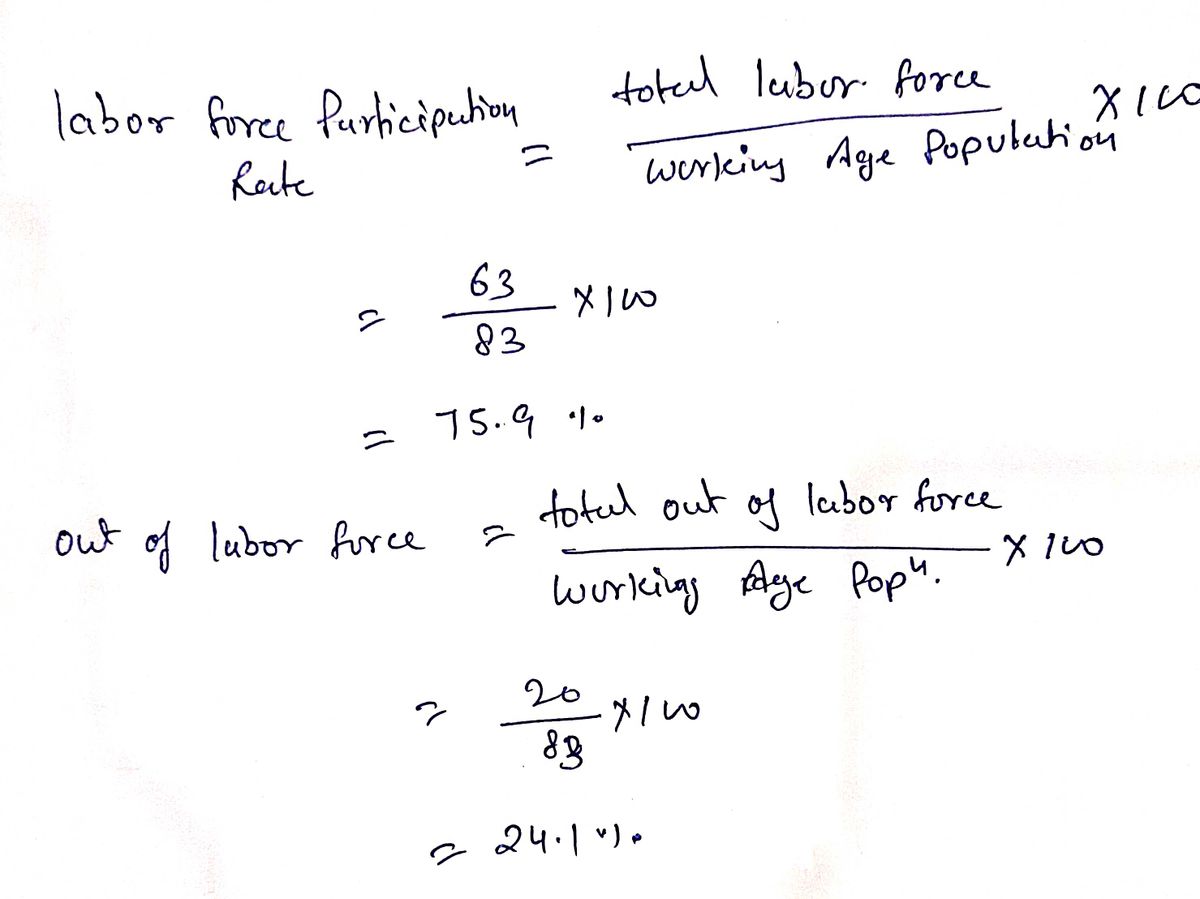 labor force Participation Rate = total labor force / Working Age Population X 100
= 63 / 83 X 100
= 75.9 %
out of labor force = total out of labor force / Working Age Popn. X 100
= 20 / 83 X 100
= 24.1 %